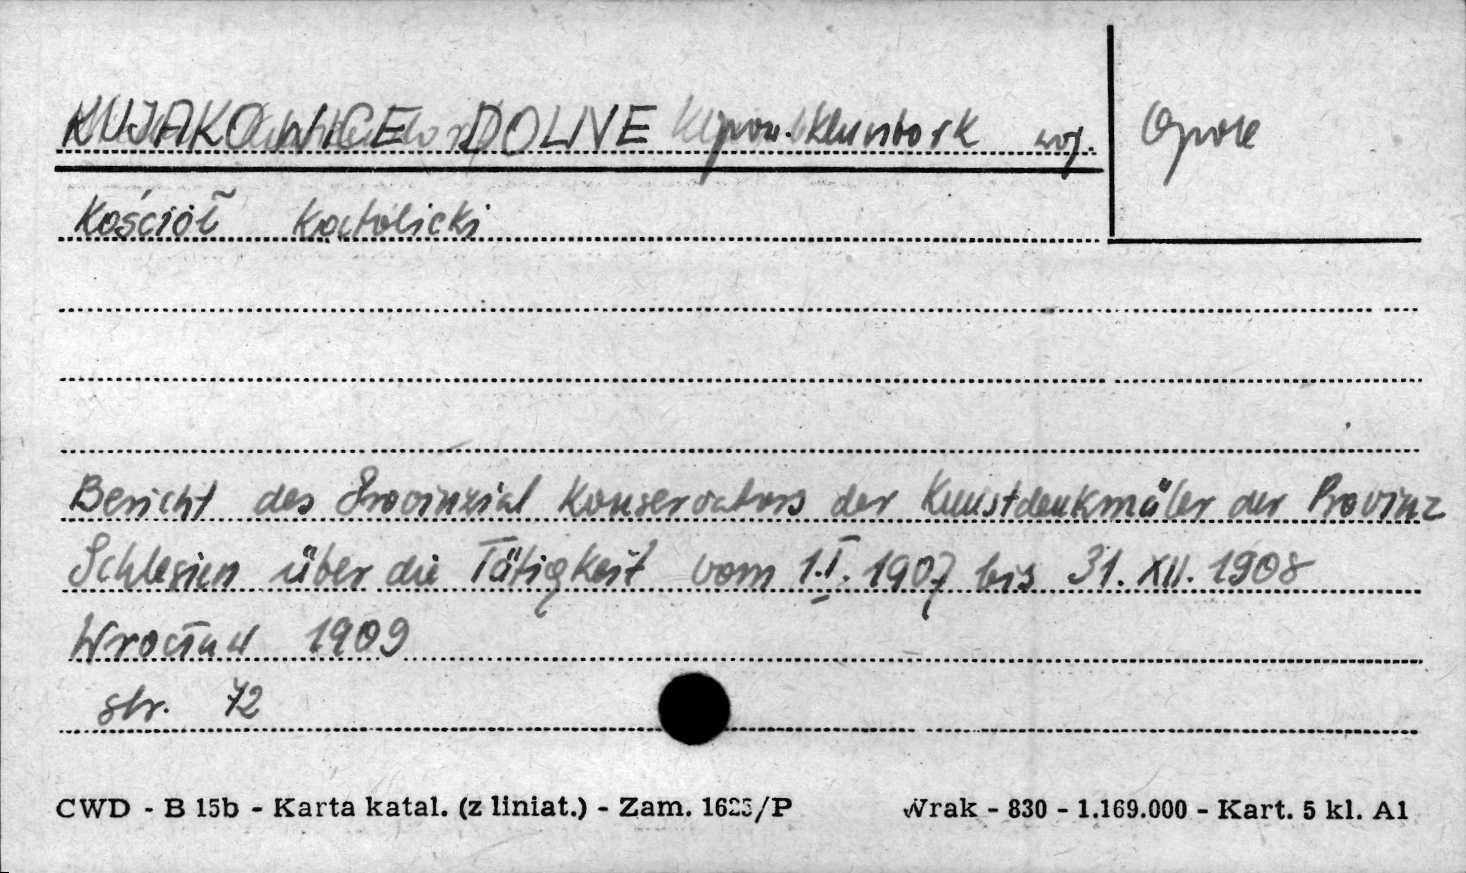 KUJAKOWICE DOLNE pow. Kluczbork woj. Opole
Kościół Katolicki
Bericht des Provinzial Konservators der Kunstdenkmäler der Provinz
Schlesien über die Tätigkeit vom 1.I.1907 bis 31.XII.1908
Wrocław 1909
str. 72
CWD - B 15b - Karta katal. (z liniat.) - Zam. 1625/P Wrak - 830 - 1.169.000 - Kart. 5 kl. A1